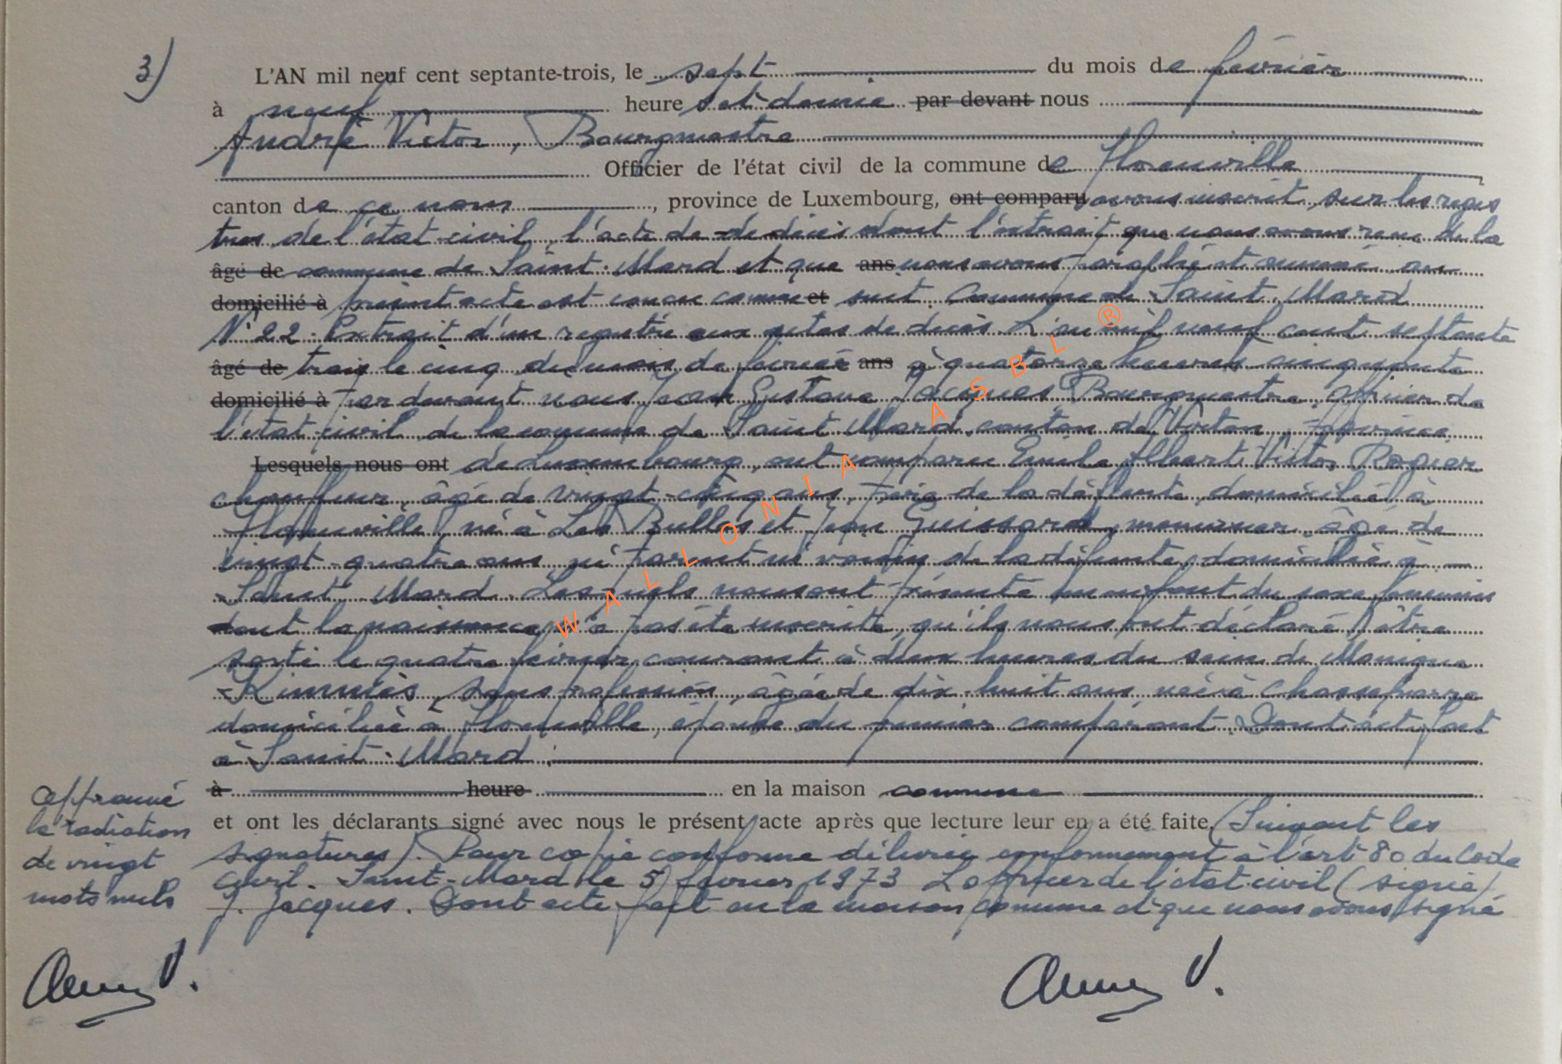 3) L'AN mil neuf cent septante-trois, le sept du mois de février
à neuf heure et demie par devant nous
André Victor, Bourgmestre
Officier de l'état civil de la commune de Florenville
canton de ce nom, province de Luxembourg, ont comparu avons inscrit sur les regis
tres de l'état civil, l'acte de décès dont l'extrait que nous avons reçu de la
âgé de commune de Saint-Mard et que ans nous avons paraphé et annexé au
domicilié à présent acte est conçu comme et suit. Commune de Saint-Mard
N° 22. Extrait d'un registre aux actes de décès. L'an mil neuf cent septante
âgé de trois le cinq du mois de février ans à quatorze heures cinquante
domicilié à Par devant nous Jean Gustave Jacques Bourgmestre, officier de
l'état civil de la commune de Saint Mard, canton de Virton, province
Lesquels nous ont de Luxembourg, ont comparu Emile Albert Victor Rogier
chauffeur, âgé de vingt-cinq ans, père de la défunte, domicilié à
Florenville, né à Les Bulles et Jean Guissard, menuisier, âgé de
vingt-quatre ans ni parent ni voisin de la défunte, domicilié à
Saint Mard. Lesquels nous ont présenté un enfant du sexe féminin
dont la naissance n'a pas été inscrite, qu'ils nous ont déclaré être
sorti le quatre février courant à deux heures du sein de Monique
sans profession, âgée de dix-huit ans née à Chassepierre
domiciliée à Florenville, épouse du premier comparant. Dont acte fait
à Saint-Mard.
à heure en la maison commune
et ont les déclarants signé avec nous le présent acte après que lecture leur en a été faite, (Suivent les
signatures). Pour copie conforme délivrée conformément à l'art 80 du Code
civil. Saint-Mard le 5 février 1973 L'officier de l'état civil (signé)
J. Jacques. Dont acte fait en la maison commune et que nous avons signé
approuvé
la radiation
de vingt
mots nuls
WALLONIA ASBL ®